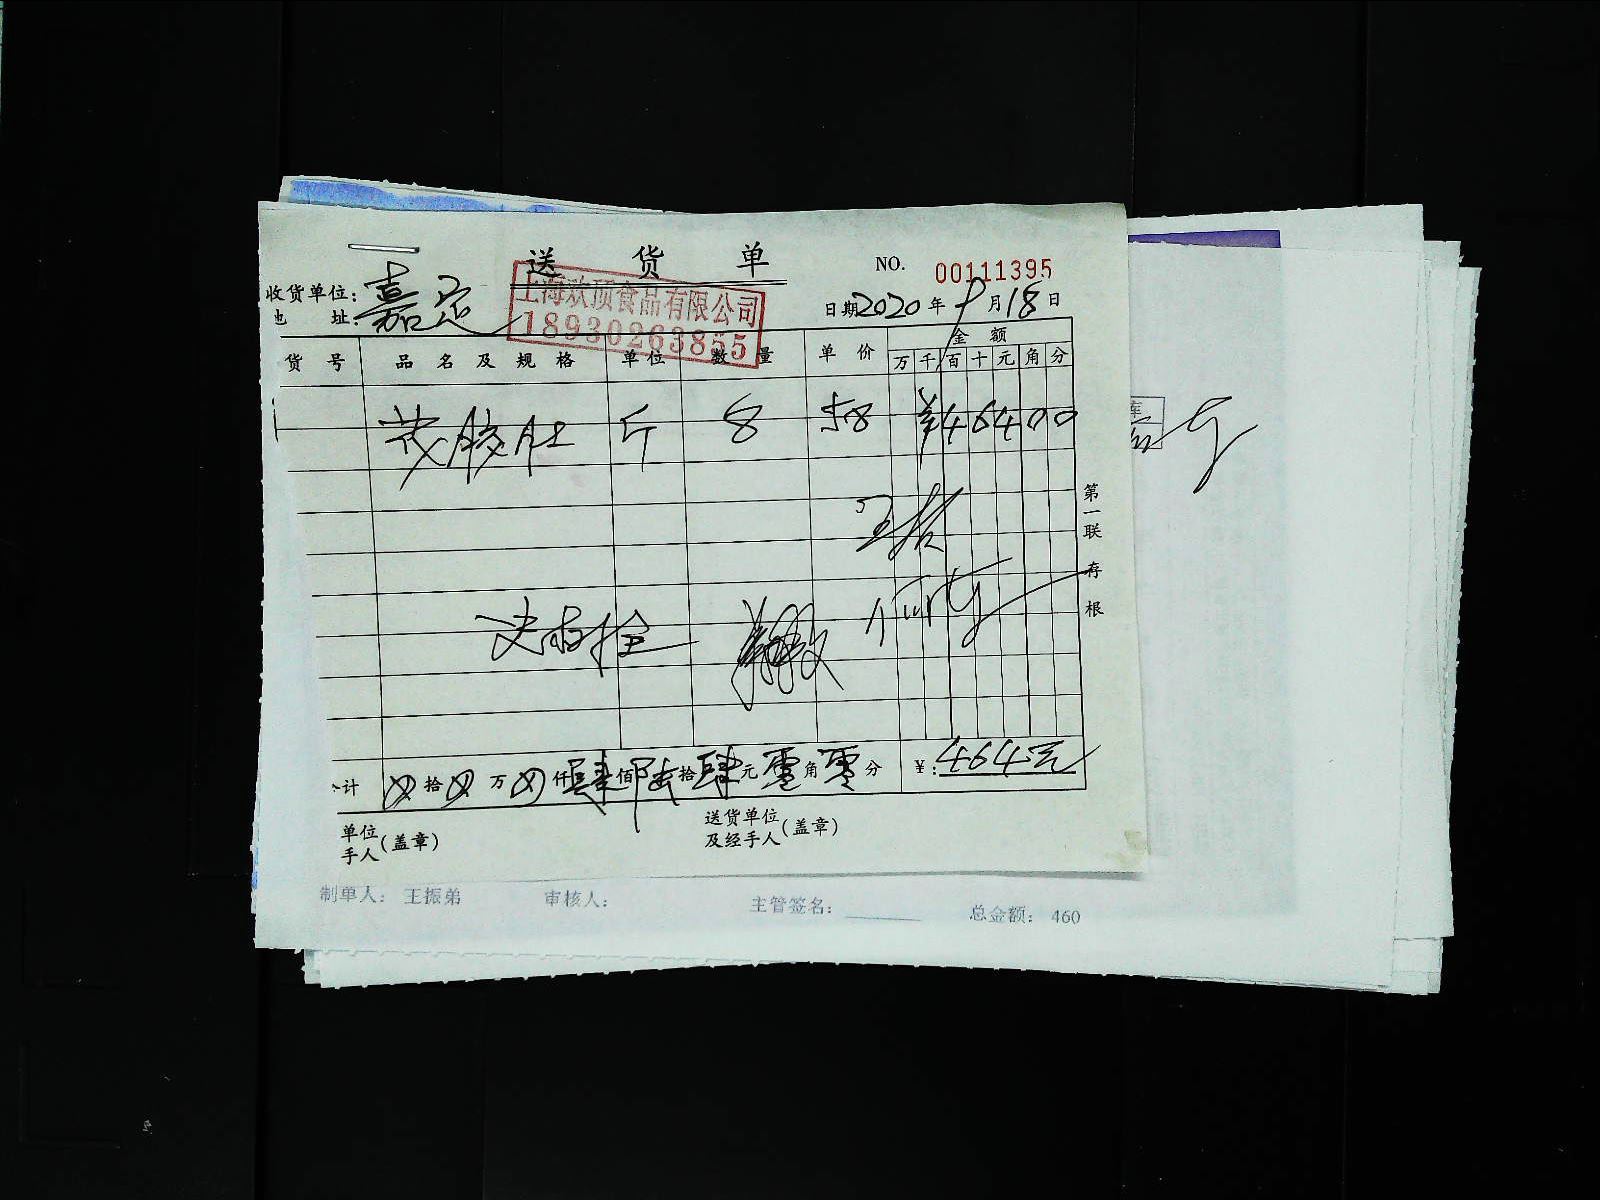 送 货 单
NO. 00111395
收货单位: 嘉定
地 址:
日期 2020 年 9 月 18 日
上海欢顶食品有限公司
18930263855
货 号 品 名 及 规 格 单位 数 量 单 价 金 额
万 千 百 十 元 角 分
花胶肚 斤 8 58 ¥ 4 6 4 0 0
第一联 存根
合计 拾 万 仟 肆 佰 陆 拾 肆 元 零 角 零 分 ¥: 464元
单位
手人 (盖章)
送货单位
及经手人 (盖章)
制单人: 王振弟 审核人: 主管签名: 总金额: 460